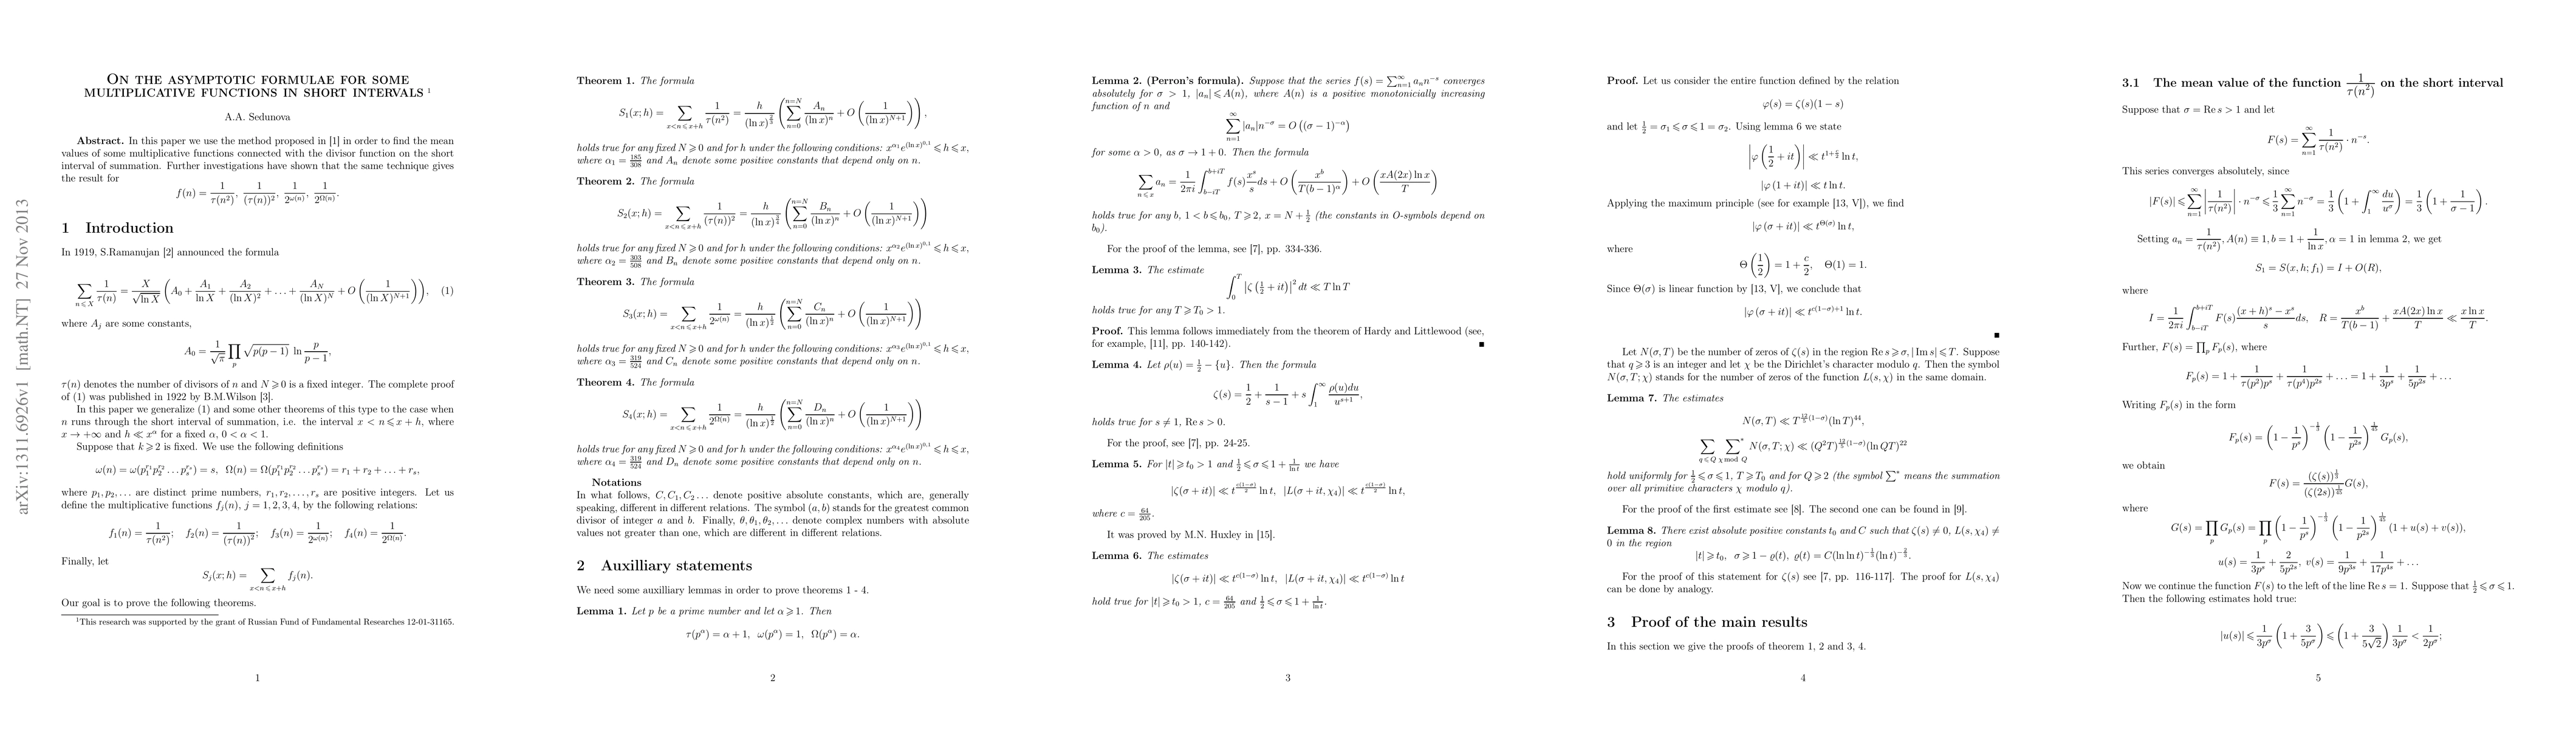 arXiv:1311.6926v1 [math.NT] 27 Nov 2013
ON THE ASYMPTOTIC FORMULAE FOR SOME
MULTIPLICATIVE FUNCTIONS IN SHORT INTERVALS ¹
A.A. Sedunova
Abstract. In this paper we use the method proposed in [1] in order to find the mean
values of some multiplicative functions connected with the divisor function on the short
interval of summation. Further investigations have shown that the same technique gives
the result for
f(n) = \frac{1}{τ(n²)}, \frac{1}{(τ(n))²}, \frac{1}{2^{ω(n)}}, \frac{1}{2^{Ω(n)}}.
1 Introduction
In 1919, S.Ramanujan [2] announced the formula
\sum_{n⩽X} \frac{1}{τ(n)} = \frac{X}{\sqrt{\ln X}} \left( A_0 + \frac{A_1}{\ln X} + \frac{A_2}{(\ln X)^2} + … + \frac{A_N}{(\ln X)^N} + O\left(\frac{1}{(\ln X)^{N+1}}\right)\right), (1)
where A_j are some constants,
A_0 = \frac{1}{\sqrt{π}} \prod_p \sqrt{p(p−1)} \ln \frac{p}{p−1},
τ(n) denotes the number of divisors of n and N ⩾ 0 is a fixed integer. The complete proof
of (1) was published in 1922 by B.M.Wilson [3].
In this paper we generalize (1) and some other theorems of this type to the case when
n runs through the short interval of summation, i.e. the interval x < n ⩽ x + h, where
x → +∞ and h ≪ x^α for a fixed α, 0 < α < 1.
Suppose that k ⩾ 2 is fixed. We use the following definitions
ω(n) = ω(p_1^{r_1} p_2^{r_2} … p_s^{r_s}) = s, Ω(n) = Ω(p_1^{r_1} p_2^{r_2} … p_s^{r_s}) = r_1 + r_2 + … + r_s,
where p_1, p_2, … are distinct prime numbers, r_1, r_2, …, r_s are positive integers. Let us
define the multiplicative functions f_j(n), j = 1, 2, 3, 4, by the following relations:
f_1(n) = \frac{1}{τ(n²)}; f_2(n) = \frac{1}{(τ(n))²}; f_3(n) = \frac{1}{2^{ω(n)}}; f_4(n) = \frac{1}{2^{Ω(n)}}.
Finally, let
S_j(x; h) = \sum_{x<n⩽x+h} f_j(n).
Our goal is to prove the following theorems.
¹This research was supported by the grant of Russian Fund of Fundamental Researches 12-01-31165.
1
Theorem 1. The formula
S_1(x; h) = \sum_{x<n⩽x+h} \frac{1}{τ(n²)} = \frac{h}{(\ln x)^{\frac{2}{3}}} \left( \sum_{n=0}^{n=N} \frac{A_n}{(\ln x)^n} + O\left(\frac{1}{(\ln x)^{N+1}}\right)\right),
holds true for any fixed N ⩾ 0 and for h under the following conditions: x^{α_1} e^{(\ln x)^{0,1}} ⩽ h ⩽ x,
where α_1 = \frac{185}{308} and A_n denote some positive constants that depend only on n.
Theorem 2. The formula
S_2(x; h) = \sum_{x<n⩽x+h} \frac{1}{(τ(n))²} = \frac{h}{(\ln x)^{\frac{3}{4}}} \left( \sum_{n=0}^{n=N} \frac{B_n}{(\ln x)^n} + O\left(\frac{1}{(\ln x)^{N+1}}\right)\right)
holds true for any fixed N ⩾ 0 and for h under the following conditions: x^{α_2} e^{(\ln x)^{0,1}} ⩽ h ⩽ x,
where α_2 = \frac{303}{508} and B_n denote some positive constants that depend only on n.
Theorem 3. The formula
S_3(x; h) = \sum_{x<n⩽x+h} \frac{1}{2^{ω(n)}} = \frac{h}{(\ln x)^{\frac{1}{2}}} \left( \sum_{n=0}^{n=N} \frac{C_n}{(\ln x)^n} + O\left(\frac{1}{(\ln x)^{N+1}}\right)\right)
holds true for any fixed N ⩾ 0 and for h under the following conditions: x^{α_3} e^{(\ln x)^{0,1}} ⩽ h ⩽ x,
where α_3 = \frac{319}{524} and C_n denote some positive constants that depend only on n.
Theorem 4. The formula
S_4(x; h) = \sum_{x<n⩽x+h} \frac{1}{2^{Ω(n)}} = \frac{h}{(\ln x)^{\frac{1}{2}}} \left( \sum_{n=0}^{n=N} \frac{D_n}{(\ln x)^n} + O\left(\frac{1}{(\ln x)^{N+1}}\right)\right)
holds true for any fixed N ⩾ 0 and for h under the following conditions: x^{α_4} e^{(\ln x)^{0,1}} ⩽ h ⩽ x,
where α_4 = \frac{319}{524} and D_n denote some positive constants that depend only on n.
Notations
In what follows, C, C_1, C_2 … denote positive absolute constants, which are, generally
speaking, different in different relations. The symbol (a, b) stands for the greatest common
divisor of integer a and b. Finally, θ, θ_1, θ_2, … denote complex numbers with absolute
values not greater than one, which are different in different relations.
2 Auxilliary statements
We need some auxilliary lemmas in order to prove theorems 1 - 4.
Lemma 1. Let p be a prime number and let α ⩾ 1. Then
τ(p^α) = α + 1, ω(p^α) = 1, Ω(p^α) = α.
2
Lemma 2. (Perron's formula). Suppose that the series f(s) = \sum_{n=1}^{∞} a_n n^{−s} converges
absolutely for σ > 1, |a_n| ⩽ A(n), where A(n) is a positive monotonicially increasing
function of n and
\sum_{n=1}^{∞} |a_n| n^{−σ} = O((σ − 1)^{−α})
for some α > 0, as σ → 1 + 0. Then the formula
\sum_{n⩽x} a_n = \frac{1}{2πi} \int_{b−iT}^{b+iT} f(s) \frac{x^s}{s} ds + O\left(\frac{x^b}{T(b−1)^α}\right) + O\left(\frac{xA(2x) \ln x}{T}\right)
holds true for any b, 1 < b ⩽ b_0, T ⩾ 2, x = N + \frac{1}{2} (the constants in O-symbols depend on
b_0).
For the proof of the lemma, see [7], pp. 334-336.
Lemma 3. The estimate
\int_0^T |ζ(\frac{1}{2} + it)|² dt ≪ T \ln T
holds true for any T ⩾ T_0 > 1.
Proof. This lemma follows immediately from the theorem of Hardy and Littlewood (see,
for example, [11], pp. 140-142). ■
Lemma 4. Let ρ(u) = \frac{1}{2} − {u}. Then the formula
ζ(s) = \frac{1}{2} + \frac{1}{s−1} + s \int_1^{∞} \frac{ρ(u)du}{u^{s+1}},
holds true for s ≠ 1, Re s > 0.
For the proof, see [7], pp. 24-25.
Lemma 5. For |t| ⩾ t_0 > 1 and \frac{1}{2} ⩽ σ ⩽ 1 + \frac{1}{\ln t} we have
|ζ(σ + it)| ≪ t^{\frac{c(1−σ)}{2}} \ln t, |L(σ + it, χ_4)| ≪ t^{\frac{c(1−σ)}{2}} \ln t,
where c = \frac{64}{205}.
It was proved by M.N. Huxley in [15].
Lemma 6. The estimates
|ζ(σ + it)| ≪ t^{c(1−σ)} \ln t, |L(σ + it, χ_4)| ≪ t^{c(1−σ)} \ln t
hold true for |t| ⩾ t_0 > 1, c = \frac{64}{205} and \frac{1}{2} ⩽ σ ⩽ 1 + \frac{1}{\ln t}.
3
Proof. Let us consider the entire function defined by the relation
φ(s) = ζ(s)(1 − s)
and let \frac{1}{2} = σ_1 ⩽ σ ⩽ 1 = σ_2. Using lemma 6 we state
|φ(\frac{1}{2} + it)| ≪ t^{1+\frac{c}{2}} \ln t,
|φ(1 + it)| ≪ t \ln t.
Applying the maximum principle (see for example [13, V]), we find
|φ(σ + it)| ≪ t^{Θ(σ)} \ln t,
where
Θ(\frac{1}{2}) = 1 + \frac{c}{2}, Θ(1) = 1.
Since Θ(σ) is linear function by [13, V], we conclude that
|φ(σ + it)| ≪ t^{c(1−σ)+1} \ln t.
■
Let N(σ, T) be the number of zeros of ζ(s) in the region Re s ⩾ σ, | Im s| ⩽ T. Suppose
that q ⩾ 3 is an integer and let χ be the Dirichlet's character modulo q. Then the symbol
N(σ, T; χ) stands for the number of zeros of the function L(s, χ) in the same domain.
Lemma 7. The estimates
N(σ, T) ≪ T^{\frac{12}{5}(1−σ)} (\ln T)^{44},
\sum_{q⩽Q} \sum^*_{χ mod Q} N(σ, T; χ) ≪ (Q²T)^{\frac{12}{5}(1−σ)} (\ln QT)^{22}
hold uniformly for \frac{1}{2} ⩽ σ ⩽ 1, T ⩾ T_0 and for Q ⩾ 2 (the symbol \sum^* means the summation
over all primitive characters χ modulo q).
For the proof of the first estimate see [8]. The second one can be found in [9].
Lemma 8. There exist absolute positive constants t_0 and C such that ζ(s) ≠ 0, L(s, χ_4) ≠
0 in the region
|t| ⩾ t_0, σ ⩾ 1 − ϱ(t), ϱ(t) = C(\ln \ln t)^{−\frac{1}{3}} (\ln t)^{−\frac{2}{3}}.
For the proof of this statement for ζ(s) see [7, pp. 116-117]. The proof for L(s, χ_4)
can be done by analogy.
3 Proof of the main results
In this section we give the proofs of theorem 1, 2 and 3, 4.
4
3.1 The mean value of the function \frac{1}{τ(n²)} on the short interval
Suppose that σ = Re s > 1 and let
F(s) = \sum_{n=1}^{∞} \frac{1}{τ(n²)} · n^{−s}.
This series converges absolutely, since
|F(s)| ⩽ \sum_{n=1}^{∞} \left|\frac{1}{τ(n²)}\right| · n^{−σ} ⩽ \frac{1}{3} \sum_{n=1}^{∞} n^{−σ} = \frac{1}{3}\left(1 + \int_1^{∞} \frac{du}{u^σ}\right) = \frac{1}{3}\left(1 + \frac{1}{σ−1}\right).
Setting a_n = \frac{1}{τ(n²)}, A(n) ≡ 1, b = 1 + \frac{1}{\ln x}, α = 1 in lemma 2, we get
S_1 = S(x, h; f_1) = I + O(R),
where
I = \frac{1}{2πi} \int_{b−iT}^{b+iT} F(s) \frac{(x+h)^s − x^s}{s} ds, R = \frac{x^b}{T(b−1)} + \frac{xA(2x) \ln x}{T} ≪ \frac{x \ln x}{T}.
Further, F(s) = \prod_p F_p(s), where
F_p(s) = 1 + \frac{1}{τ(p²)p^s} + \frac{1}{τ(p⁴)p^{2s}} + … = 1 + \frac{1}{3p^s} + \frac{1}{5p^{2s}} + …
Writing F_p(s) in the form
F_p(s) = \left(1 − \frac{1}{p^s}\right)^{−\frac{1}{3}} \left(1 − \frac{1}{p^{2s}}\right)^{\frac{1}{45}} G_p(s),
we obtain
F(s) = \frac{(ζ(s))^{\frac{1}{3}}}{(ζ(2s))^{\frac{1}{45}}} G(s),
where
G(s) = \prod_p G_p(s) = \prod_p \left(1 − \frac{1}{p^s}\right)^{−\frac{1}{3}} \left(1 − \frac{1}{p^{2s}}\right)^{\frac{1}{45}} (1 + u(s) + v(s)),
u(s) = \frac{1}{3p^s} + \frac{2}{5p^{2s}}, v(s) = \frac{1}{9p^{3s}} + \frac{1}{17p^{4s}} + …
Now we continue the function F(s) to the left of the line Re s = 1. Suppose that \frac{1}{2} ⩽ σ ⩽ 1.
Then the following estimates hold true:
|u(s)| ⩽ \frac{1}{3p^σ}\left(1 + \frac{3}{5p^σ}\right) ⩽ \left(1 + \frac{3}{5\sqrt{2}}\right) \frac{1}{3p^σ} < \frac{1}{2p^σ};
5